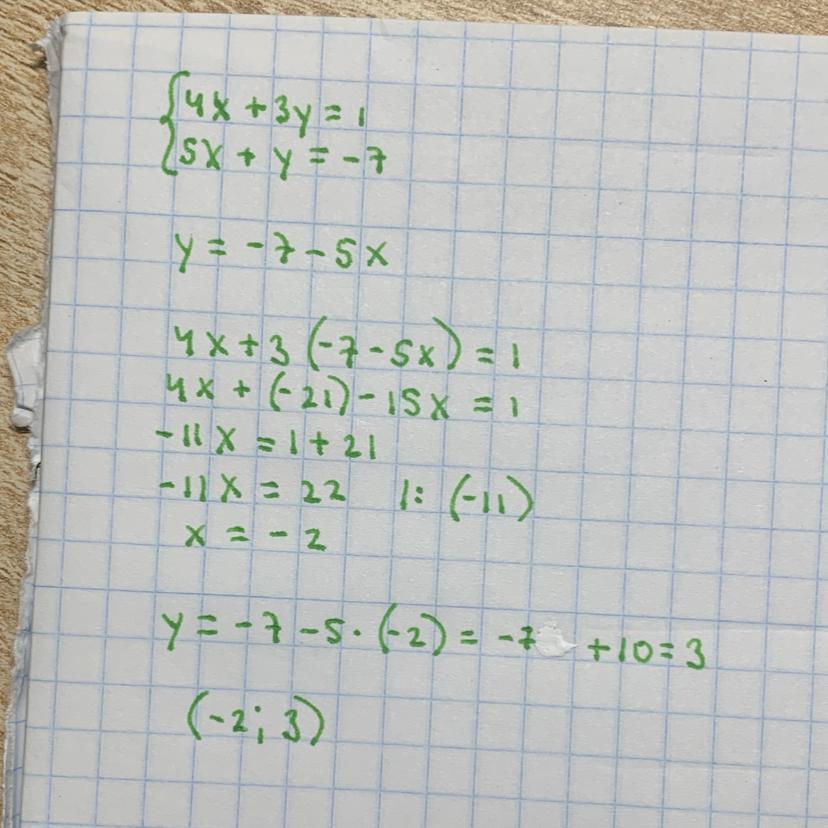 {4x + 3y = 1
5x + y = -7
y = -7 - 5x
4x + 3 (-7 - 5x) = 1
4x + (-21) - 15x = 1
-11x = 1 + 21
-11x = 22 |: (-11)
x = -2
y = -7 - 5 · (-2) = -7 + 10 = 3
(-2; 3)